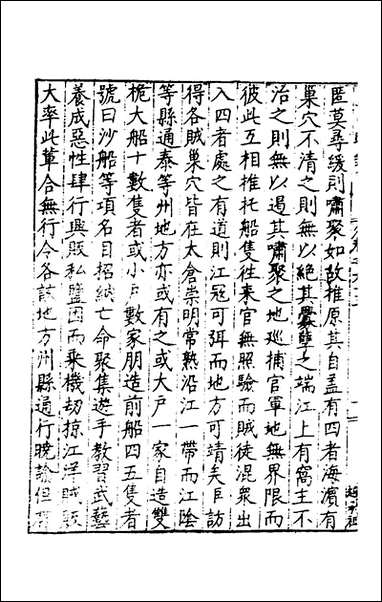 匿莫尋緩則嘯聚如故推原其自盖有四者海濵有
巢穴不清之則無以絶其釁孽之端江上有窩主不
治之則無以遏其嘯聚之地巡捕官軍地無界限而
彼此互相推托船隻徃来官無照驗而賊徒混衆出
入四者處之有道則江冦可弭而地方可靖矣臣訪
得各賊巢穴皆在太倉崇明常熟沿江一帶而江陰
等縣通泰等州地方亦或有之或大户一家自造雙
桅大船十數隻者或小户數家朋造前船四五隻者
號曰沙船等項名目招納亡命聚集遊手教習武藝
養成惡性肆行興販私鹽因而乗機刼掠江洋賊殺
大率此軰合無行令各該地方州縣通行曉諭但